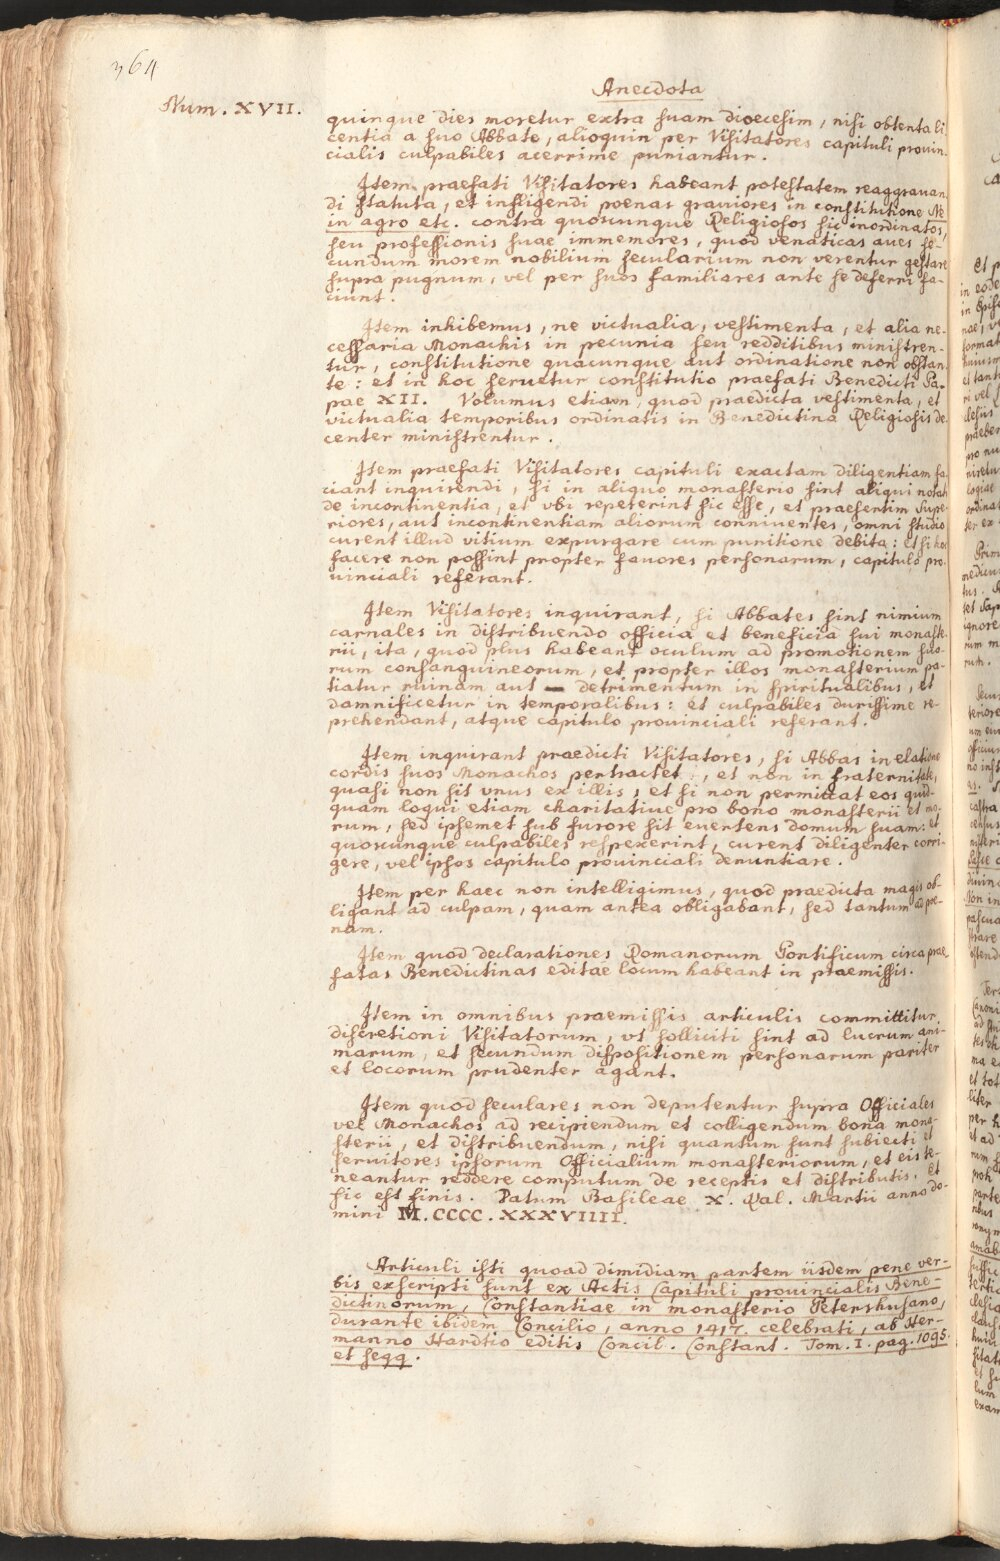 364
Anecdota
Num. XVII.
quinque dies moretur extra suam dioecesim, nisi obtenta li-
centia a suo Abbate, alioquin per Visitatores capituli provin-
cialis culpabiles acerrime puniantur.
Item praefati Visitatores habeant potestatem reaggravan-
di statuta, et infligendi poenas graviores in constitutione Ne
in agro etc. contra quoscunque Religiosos sic inordinatos,
seu professionis suae immemores, quod venaticas aues se-
cundum morem nobilium secularium non verentur gestare
supra pugnum, vel per suos familiares ante se deferri fa-
ciunt.
Item inhibemus, ne victualia, vestimenta, et alia ne-
cessaria Monachis in pecunia seu redditibus ministren-
tur, constitutione quacunque aut ordinatione non obstan-
te: et in hoc seruetur constitutio praefati Benedicti Pa-
pae XII. Volumus etiam, quod praedicta vestimenta, et
victualia temporibus ordinatis in Benedictina Religiosis de-
center ministrentur.
Item praefati Visitatores capituli exactam diligentiam fa-
ciant inquirendi, si in aliquo monasterio sint aliqui notati
de incontinentia, et vbi repererint sic esse, et praesertim Supe-
riores, aut incontinentiam aliorum conniuentes, omni studio
curent illud vitium expurgare cum punitione debita: et si hoc
facere non possint propter fauores personarum, capitulo pro-
uinciali referant.
Item Visitatores inquirant, si Abbates sint nimium
carnales in distribuendo officia et beneficia sui monaste-
rii, ita, quod plus habeant oculum ad promotionem suo-
rum consanguineorum, et propter illos monasterium pa-
tiatur ruinam aut detrimentum in spiritualibus, et
damnificetur in temporalibus: et culpabiles durissime re-
prehendant, atque capitulo prouinciali referant.
Item inquirant praedicti Visitatores, si Abbas in elatione
cordis suos Monachos pertractet, et non in fraternitate,
quasi non sit vnus ex illis, et si non permittat eos quid-
quam loqui etiam charitatiue pro bono monasterii et mo-
rum, sed ipsemet sub furore sit euertens domum suam: et
quoscunque culpabiles respexerint, curent diligenter corri-
gere, vel ipsos capitulo prouinciali denuntiare.
Item per haec non intelligimus, quod praedicta magis ob-
ligant ad culpam, quam antea obligabant, sed tantum ad poe-
nam.
Item quod declarationes Romanorum Pontificum circa prae-
fatas Benedictinas editae locum habeant in praemissis.
Item in omnibus praemissis articulis committitur
discretioni Visitatorum, vt solliciti sint ad lucrum ani-
marum, et secundum dispositionem personarum pariter
et locorum prudenter agant.
Item quod seculares non deputentur supra Officiales
vel Monachos ad recipiendum et colligendum bona mona-
sterii, et distribuendum, nisi quantum sunt subiecti et
seruitores ipsorum Officialium monasteriorum, et eis te-
neantur reddere computum de receptis et distributis. Et
sic est finis. Datum Basileae X. Kal. Martii anno do-
mini M.CCCC.XXXVIIII.
Articuli isti quoad dimidiam partem iisdem pene ver-
bis exscripti sunt ex Actis Capituli provincialis Bene-
dictinorum, Constantiae in monasterio Petershusano,
durante ibidem Concilio, anno 1417. celebrati, ab Her-
manno Hardtio editis Concil. Constant. Tom. I. pag. 1095.
et seqq.